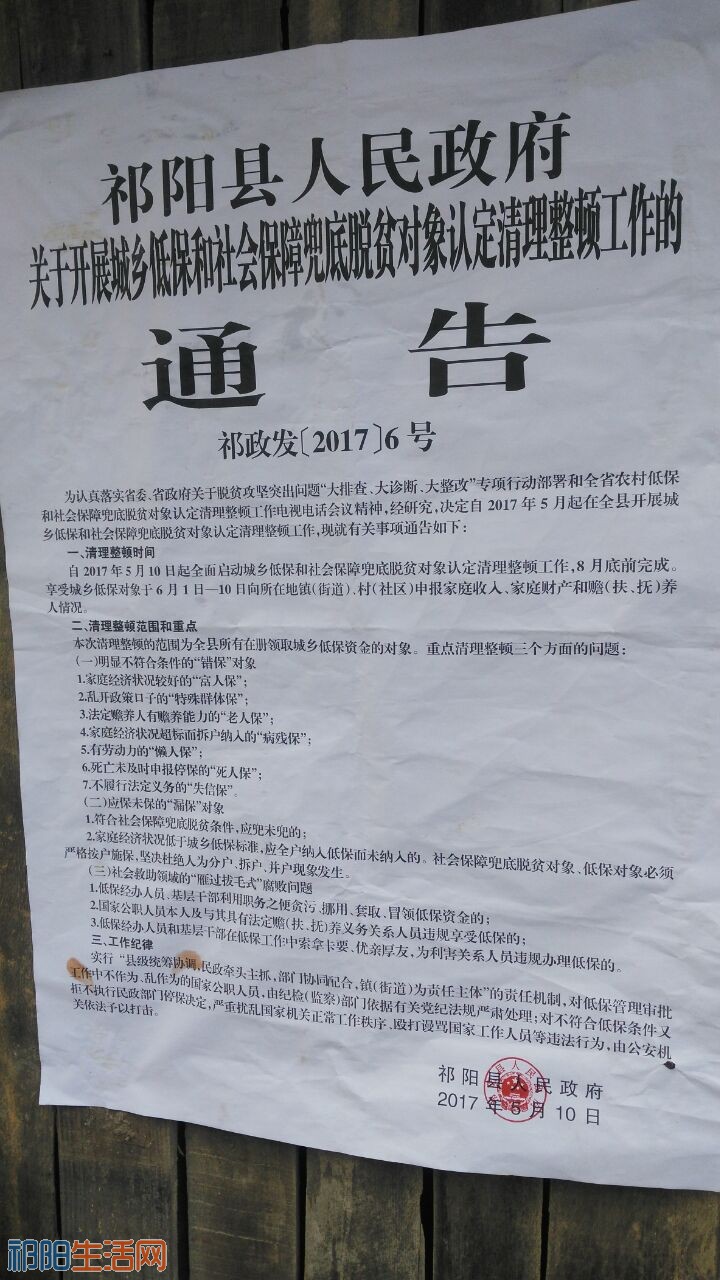 祁阳县人民政府
关于开展城乡低保和社会保障兜底脱贫对象认定清理整顿工作的
通告
祁政发〔2017〕6号
为认真落实省委、省政府关于脱贫攻坚突出问题“大排查、大诊断、大整改”专项行动部署和全省农村低保
和社会保障兜底脱贫对象认定清理整顿工作电视电话会议精神,经研究,决定自2017年5月起在全县开展城
乡低保和社会保障兜底脱贫对象认定清理整顿工作,现就有关事项通告如下:
一、清理整顿时间
自2017年5月10日起全面启动城乡低保和社会保障兜底脱贫对象认定清理整顿工作,8月底前完成。
享受城乡低保对象于6月1日—10日向所在地镇(街道)、村(社区)申报家庭收入、家庭财产和赡(扶、抚)养
人情况。
二、清理整顿范围和重点
本次清理整顿的范围为全县所有在册领取城乡低保资金的对象。重点清理整顿三个方面的问题:
(一)明显不符合条件的“错保”对象
1.家庭经济状况较好的“富人保”;
2.乱开政策口子的“特殊群体保”;
3.法定赡养人有赡养能力的“老人保”;
4.家庭经济状况超标而拆户纳入的“病残保”;
5.有劳动力的“懒人保”;
6.死亡未及时申报停保的“死人保”;
7.不履行法定义务的“失信保”。
(二)应保未保的“漏保”对象
1.符合社会保障兜底脱贫条件,应兜未兜的;
2.家庭经济状况低于城乡低保标准,应全户纳入低保而未纳入的。社会保障兜底脱贫对象、低保对象必须
严格按户施保,坚决杜绝人为分户、拆户、并户现象发生。
(三)社会救助领域的“雁过拔毛式”腐败问题
1.低保经办人员、基层干部利用职务之便贪污、挪用、套取、冒领低保资金的;
2.国家公职人员本人及与其具有法定赡(扶、抚)养义务关系人员违规享受低保的;
3.低保经办人员和基层干部在低保工作中索拿卡要、优亲厚友,为利害关系人员违规办理低保的。
三、工作纪律
实行“县级统筹协调,民政牵头主抓,部门协同配合,镇(街道)为责任主体”的责任机制,对低保管理审批
工作中不作为、乱作为的国家公职人员,由纪检(监察)部门依据有关党纪法规严肃处理;对不符合低保条件又
拒不执行民政部门停保决定,严重扰乱国家机关正常工作秩序、殴打谩骂国家工作人员等违法行为,由公安机
关依法予以打击。
祁阳县人民政府
2017年5月10日
祁阳生活网